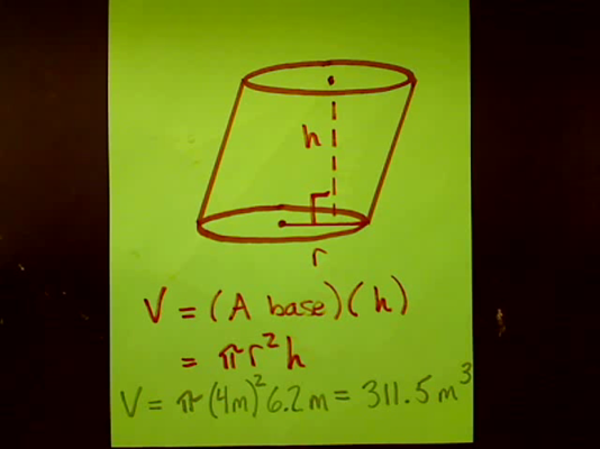 h
r
V = (A base)(h)
= πr²h
V = π(4m)²6.2m = 311.5m³